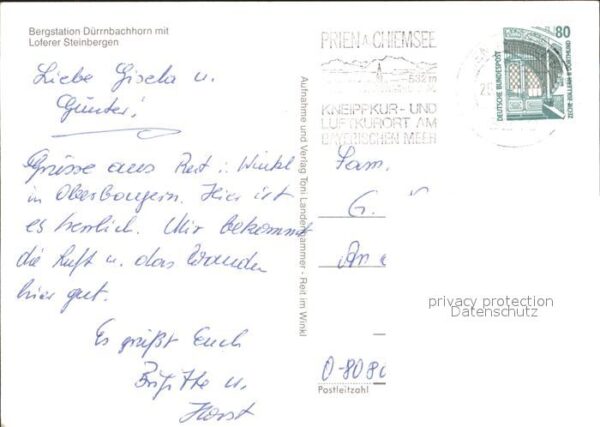 Bergstation Dürrnbachhorn mit
Loferer Steinbergen
Liebe Gisela u.
Günter!
Grüsse aus Reit i. Winkl
in Oberbayern. Hier ist
es herrlich. Mir bekommt
die Luft u. das Wandern
hier gut.
Es grüßt Euch
Brigitte u.
Horst
Aufnahme und Verlag Toni Landenhammer - Reit im Winkl
PRIEN A. CHIEMSEE
532 m
KNEIPPKUR- UND
LUFTKURORT AM
BAYERISCHEN MEER
80
DEUTSCHE BUNDESPOST
ZECHE ZOLLERN II DORTMUND
Fam.
G.
An
O-808
Postleitzahl
privacy protection
Datenschutz